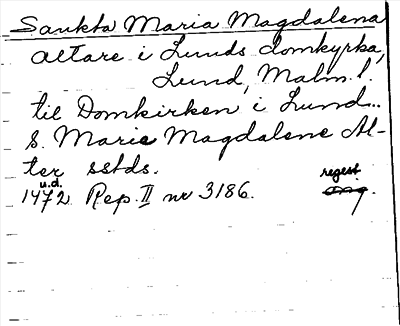 Sankta Maria Magdalena
altare i Lunds domkyrka,
Lund, Malm. l.
til Domkirken i Lund..
S. Marie Magdalene Al-
ter sstds.
u.d. regest
1472 Rep. II nr 3186. orig.